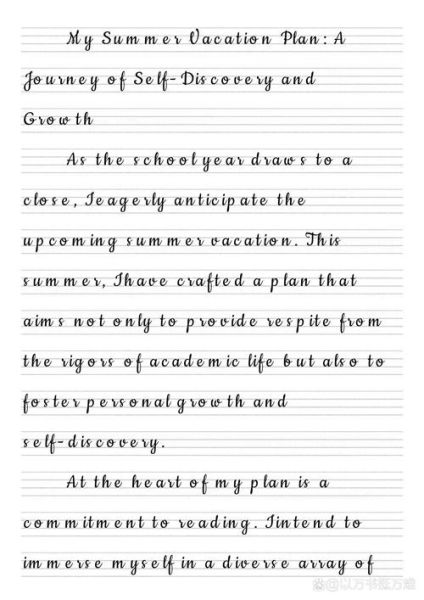 My Summer Vacation Plan: A
Journey of Self-Discovery and
Growth
As the school year draws to a
close, I eagerly anticipate the
upcoming summer vacation. This
summer, I have crafted a plan that
aims not only to provide respite from
the rigors of academic life but also to
foster personal growth and
self-discovery.
At the heart of my plan is a
commitment to reading. I intend to
immerse myself in a diverse array of